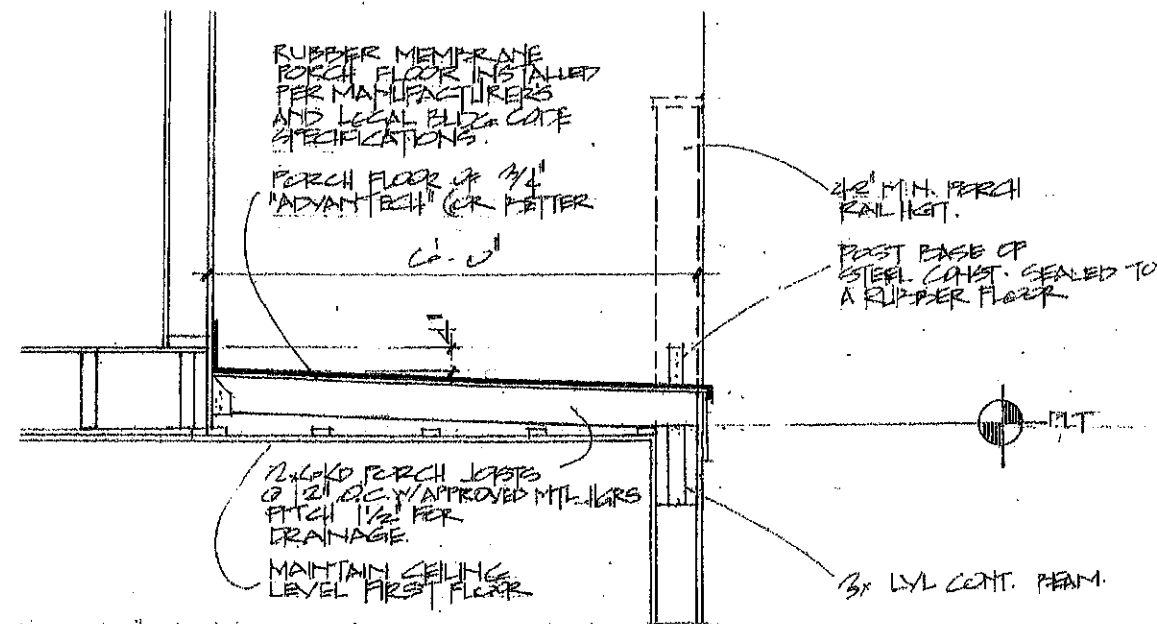 RUBBER MEMBRANE
PORCH FLOOR INSTALLED
PER MANUFACTURERS
AND LOCAL BLDG. CODE
SPECIFICATIONS.
PORCH FLOOR OF 3/4"
"ADVANTECH" (OR BETTER
6'-0"
4"
42" MIN. PORCH
RAIL HGT.
POST BASE OF
STEEL CONST. SEALED TO
A RUBBER FLOOR
2x6 KD PORCH JOISTS
@ 12" O.C. W/APPROVED MTL. HGRS
PITCH 1 1/2" FOR
DRAINAGE.
MAINTAIN CEILING
LEVEL FIRST FLOOR
3x LVL CONT. BEAM.